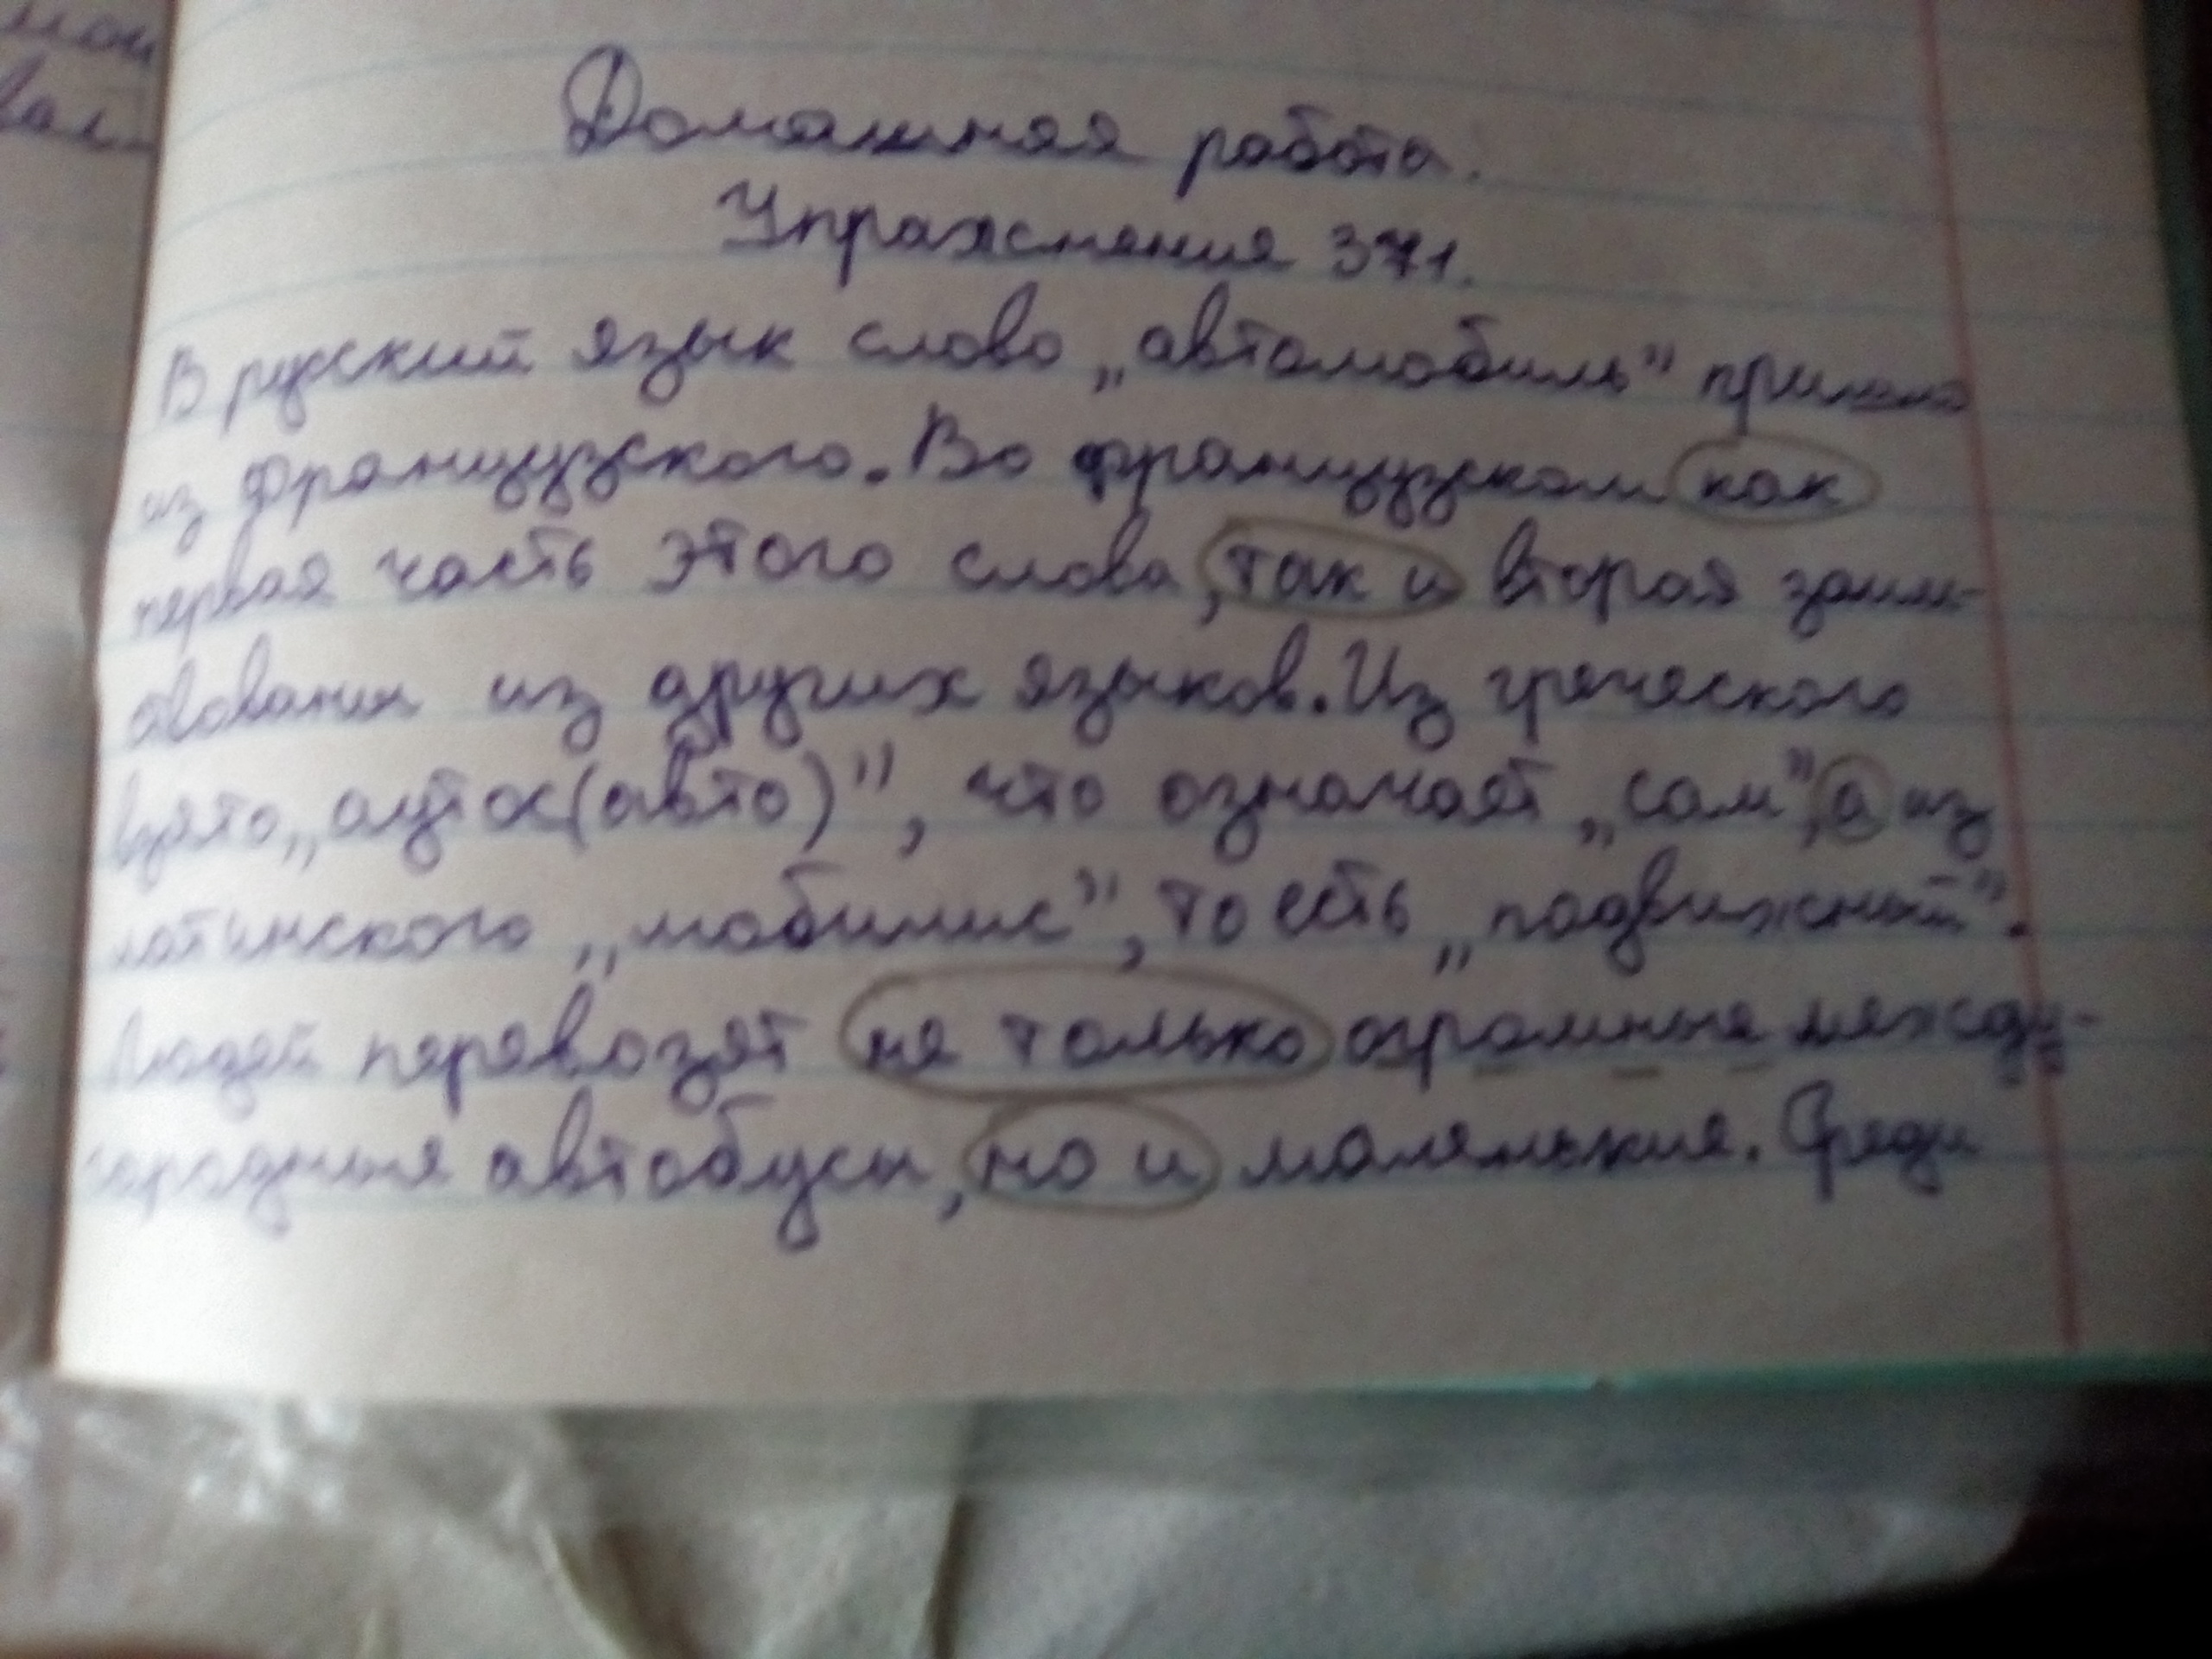 Домашняя работа.
Упражнения 371.
В русский язык слово „автомобиль" пришло
из французского. Во французском как
первая часть этого слова, так и вторая заим-
ствования из других языков. Из греческого
взято „аутос(авто)", что означает „сам", а из
латинского „мобилис", то есть „подвижный".
Людей перевозят не только огромные между-
городные автобусы, но и маленькие. Среди